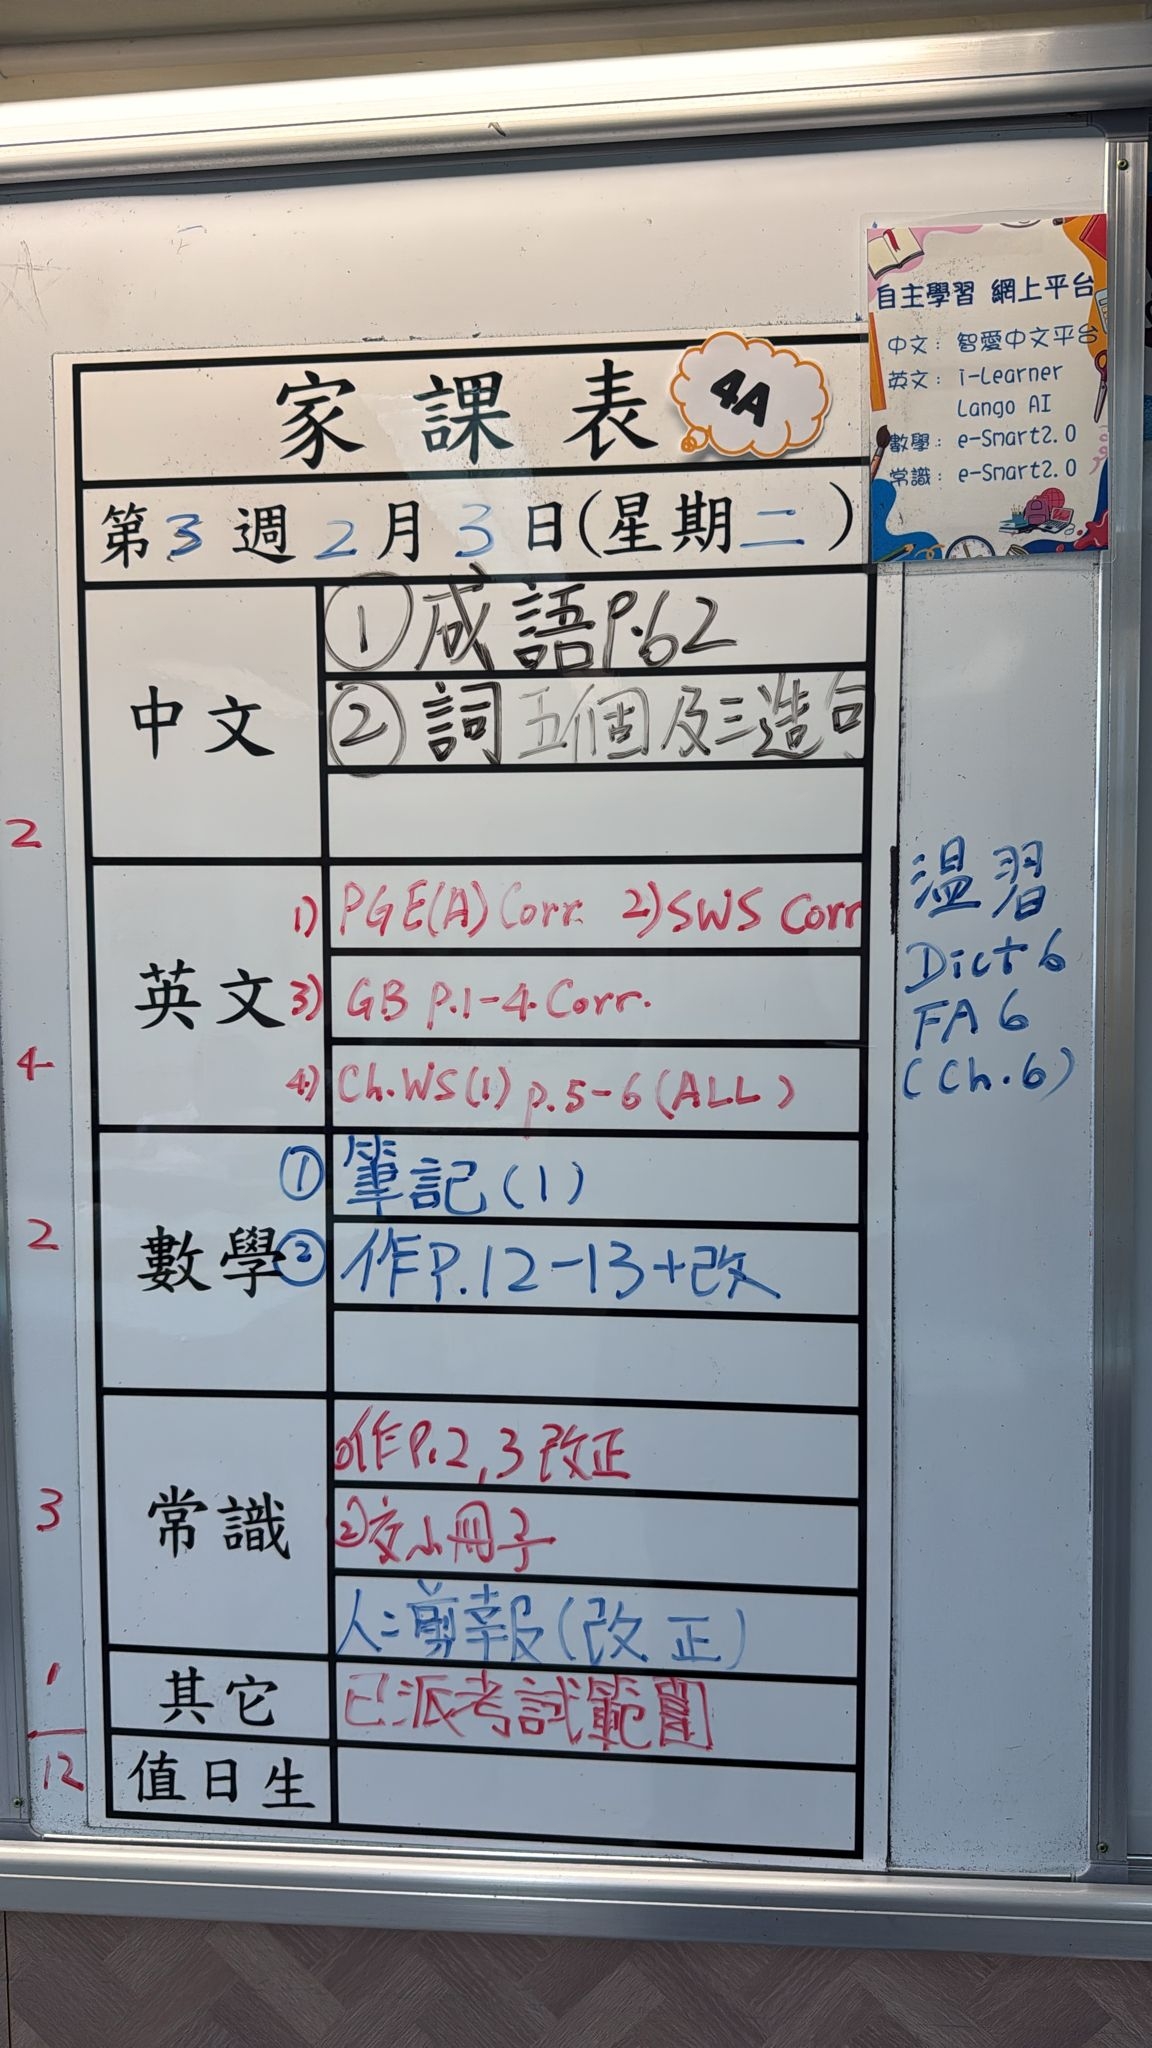 自主學習 網上平台
中文：智愛中文平台
英文：i-Learner
Lango AI
數學：e-Smart2.0
常識：e-Smart2.0
家課表 4A
第3週2月3日(星期二)
中文
①成語P.62
②詞五個及三造句
2
英文
1) PGE(A) Corr. 2) SWS Corr
3) GB P.1-4 Corr.
4) Ch.WS(1) p.5-6 (ALL)
4
溫習
Dict 6
FA 6
(Ch.6)
數學
①筆記(1)
②作P.12-13+改
2
常識
①作P.2,3改正
②交小冊子
人:剪報(改正)
3
其它
已派考試範圍
1
值日生
12